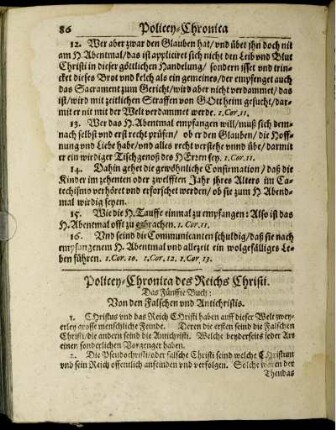 86 Policey-Chronica
12. Wer aber zwar den Glauben hat/ und übet ihn doch nit
am H Abentmal/ das ist appliciret sich nicht den Leib und Blut
Christi in dieser götlichen Handelung/ sondern isset und trin-
cket dieses Brot und kelch als ein gemeines/ der empfenget auch
das Sacrament zum Gericht/ wird aber nicht verdammet/ das
ist/ wird mit zeitlichen Straffen von GOtt heim gesucht/ dar-
mit er nit mit der Welt verdammet werde. 1. Cor. 11.
13. Wer das H Abentmal empfangen will/ muß sich dem-
nach selbst und erst recht prüfen/ ob er den Glauben/ die Hoff-
nung und Liebe habe/ und alles recht verstehe vnnd übe/ darmit
er ein wirdiger Tischgenoß des HErren sey. 1. Cor. 11.
14. Dahin gehet die gewöhnliche Confirmation/ daß die
Kinder im zehenten oder zwelfften Jahr ihres Alters im Ca-
techismo verhöret und erforschet werden/ ob sie zum H Abend-
mal wirdig seyen.
15. Wie die H. Tauffe einmal zu empfangen: Also ist das
H. Abentmal offt zu gebrachen. 1. Cor. 11.
16. Und seind die Communicanten schuldig/ daß sie nach
empfangenem H. Abentmal und allezeit ein wolgefälliges Le-
ben führen. 1. Cor. 10. 1. Cor. 12. 1. Cor. 13.
Policey-Chronica des Reichs Christi.
Das Fünffte Buch:
Von den Falschen und Antichristis.
1. CHristus und das Reich CHristi haben auff dieser Welt zwey-
erley grosse menschliche Feinde. Deren die ersten seind die Falschen
Christi/ die andern seind die Antichristi. Welche beyderseits jeder Ars
einen sonderlichen Vorgenger haben.
2. Die Pseudochristi oder falsche Christi seind welche CHristum
und sein Reich offentlich anfeinden und verfolgen. Solche waren der
Theudas